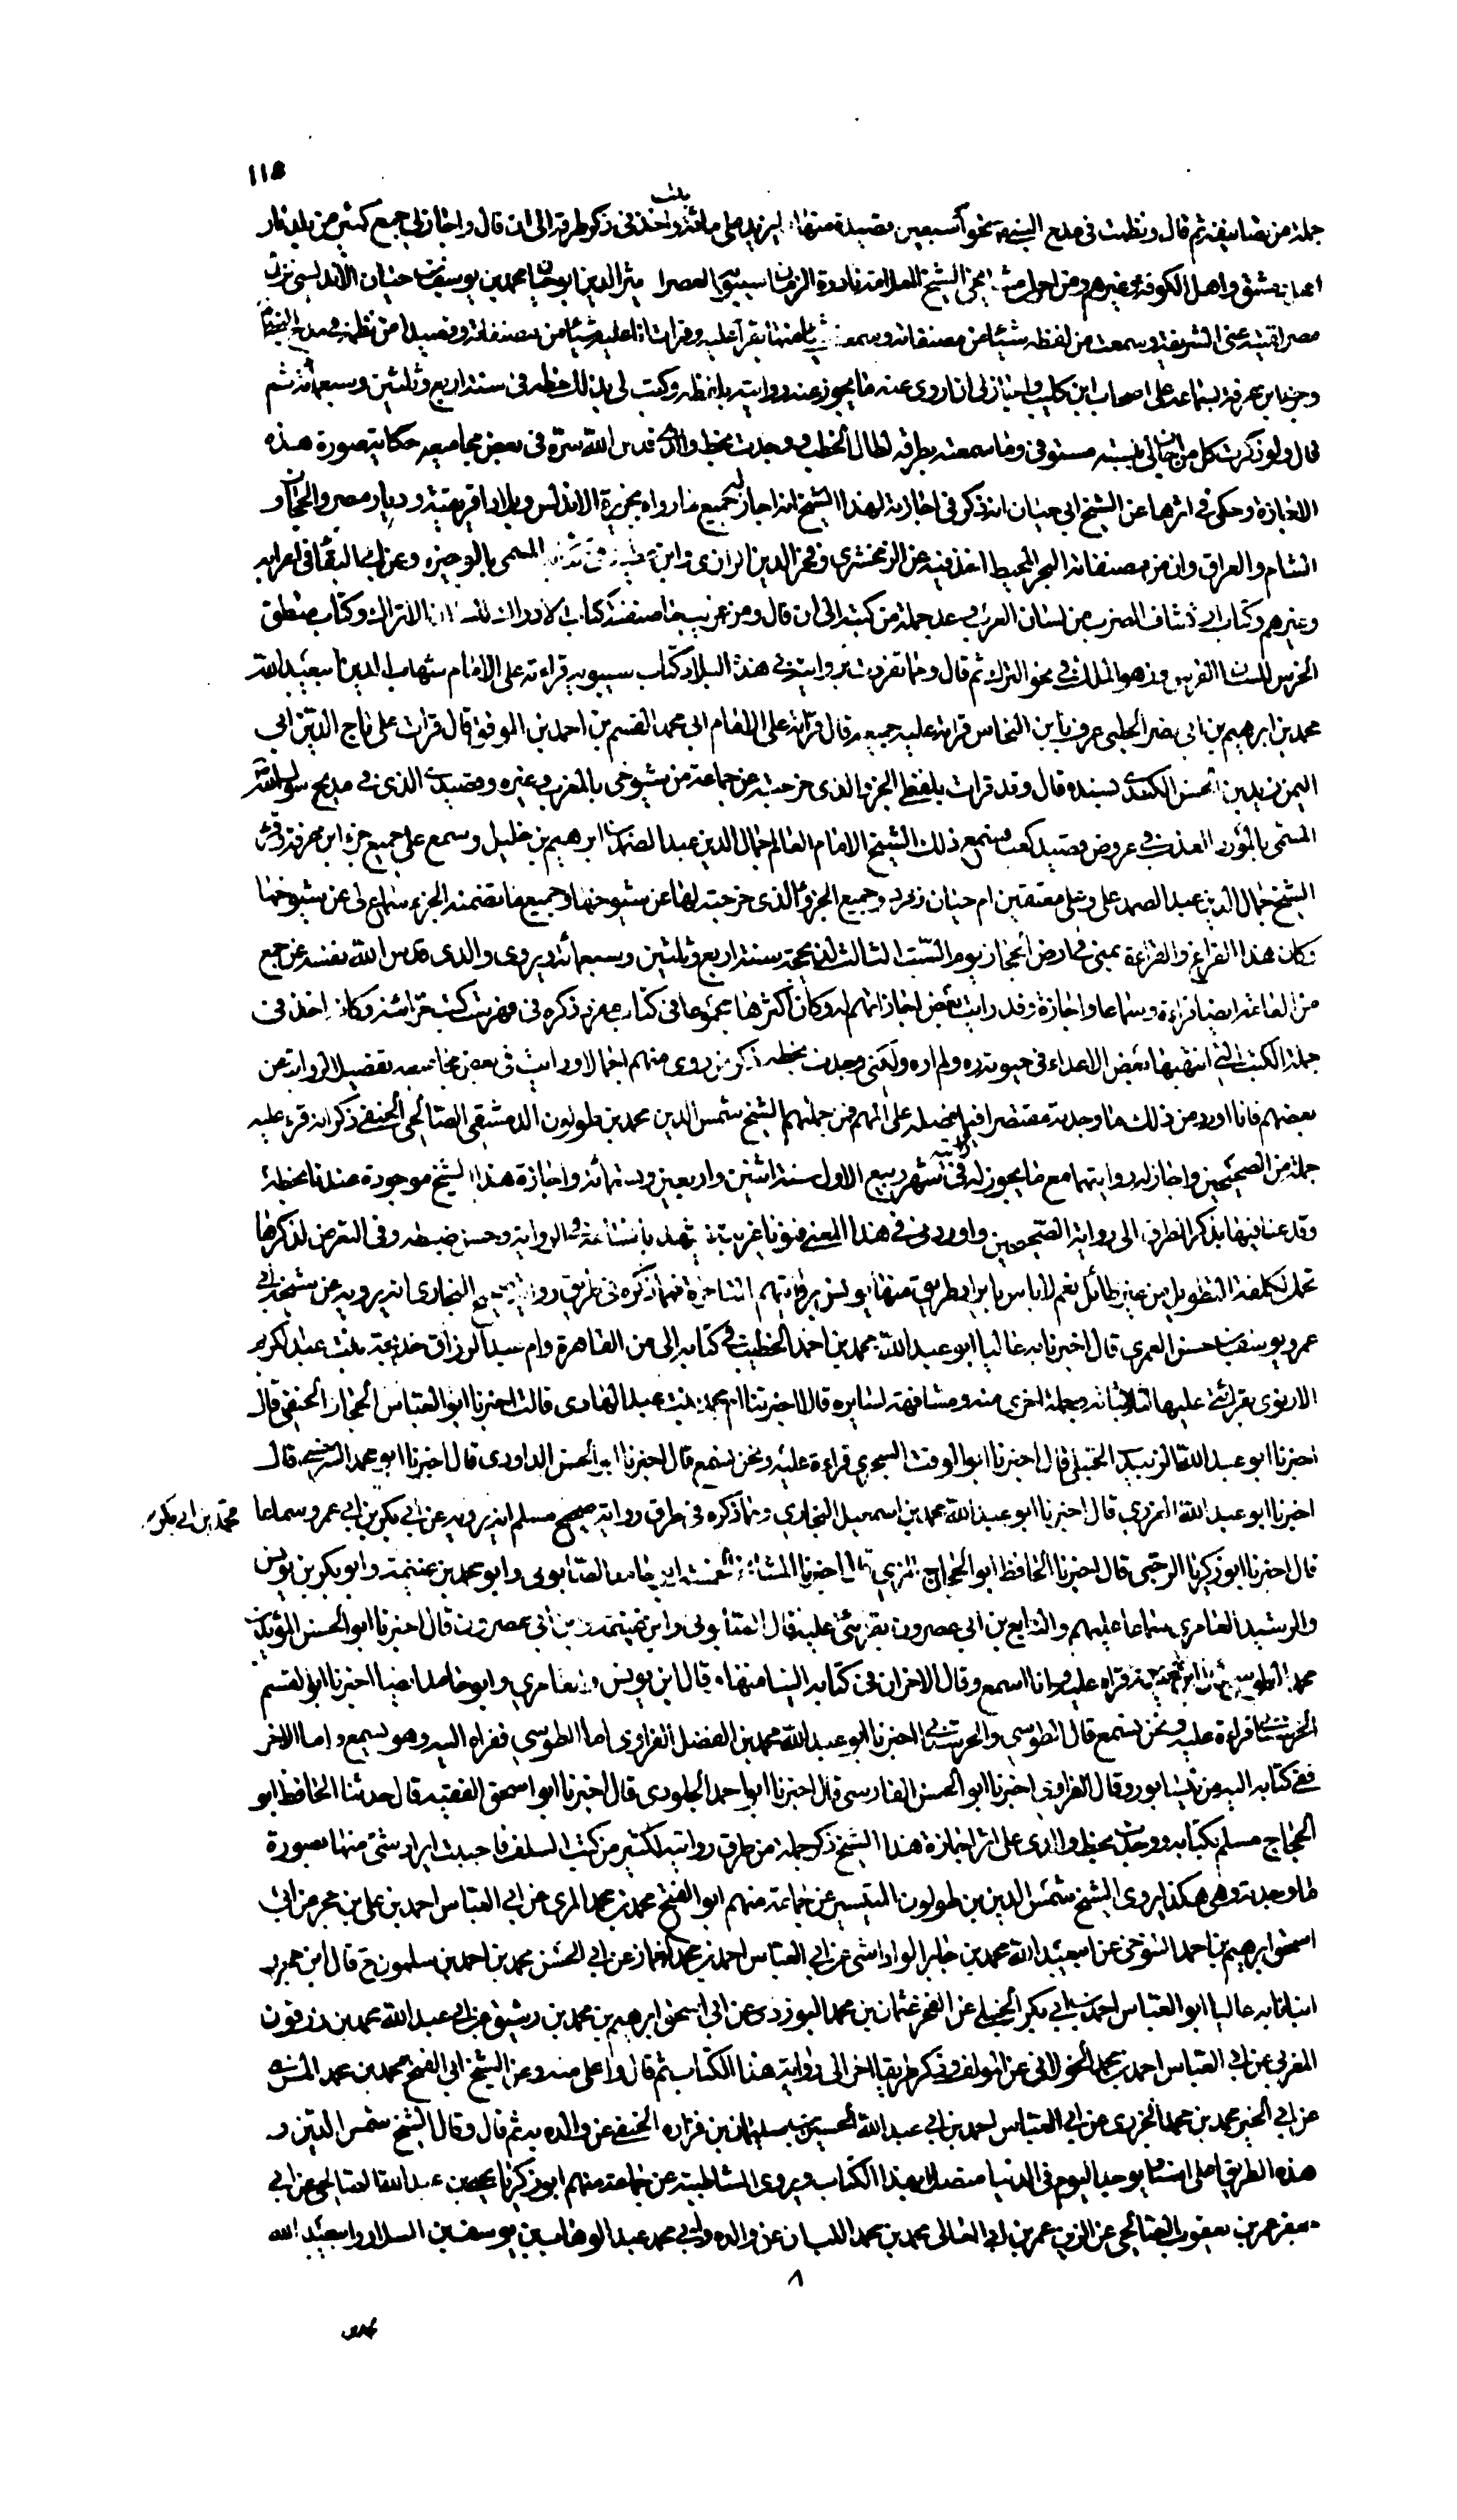 ١١٥
جملة من تصانيفه ثم قال ونظمت في مدح النبي نحوا سبعين قصيدة منها ليزيد على مائة بيت واخذ في ذكر طرقه الى ان قال واجاز لي جمع كثير من بلد
دمشق واهل الكوفة وغيرهم ومن اجل مشايخي الشيخ العلامة نادرة الزمان سيبويه العصر اثير الدين ابو حيان محمد بن يوسف بن حيان الاندلسي نزيل
مصر لقيته بمنى الشريفة وسمعت من لفظه شيئا من مصنفاته وسمعت شيئا منها يقرا عليه وقرات انا عليه شيئا من مصنفاته وقصيدا من نظمه في مدح
وجزء ابن عرفة بسماعه على اصحاب ابن كليب واجاز لي ان اروي عنه ما يجوز عنه روايته بلفظه وكتب لي بذلك خطه في سنة اربع وثلثين وسبعمائة ثم
قال ولو ذكرت كل من اجازني بنسبته مستوفى وما سمعته بطرقه لطال الخطب ووجدت بخط والدي قدس الله سره في بعض مجاميعه حكاية صورة هذه
الاجازة وحكى في اثرها عن الشيخ ابي حيان انه ذكر في اجازته لهذا الشيخ انه اجاز له جميع ما رواه بجزيرة الاندلس وبلاد افريقية وديار مصر والحجاز و
الشام والعراق وان من مصنفاته البحر المحيط اخذ فيه عن الزمخشري وفخر الدين الرازي وابن عطية في تفسيره المسمى بالوجيز وعن ابي البقا في اعرابه
وغيرهم وكتاب ارتشاف الضرب من لسان العرب وعد جملة من كتبه الى ان قال ومن غريب ما صنفته كتاب الادراك للسان الاتراك وكتاب منطق
الخرس للسان الفرس وزهو الملك في نحو الترك ثم قال وما تفردت بروايته في هذه البلاد كتاب سيبويه قراءته على الامام شهاب الدين ابي عبد الله
محمد بن ابرهيم بن ابي نصر الحلبي عرف بابن النحاس قراءة عليه جميعه قال قراته على الامام ابي محمد القسم بن احمد بن الموفق قال قرات على تاج الدين ابي
اليمن زيد بن الحسن الكندي بسنده قال وقد قرات بلفظي الجزء الذي خرجته عن جماعة من شيوخي بالمغرب وغيره وقصيدي الذي في مديح رسول الله
المسمى بالمورد العذب في عروض قصيد كعب فسمع ذلك الشيخ الامام العالم جمال الدين عبد الصمد بن ابرهيم بن خليل وسمع علي جميع جزء ابن عرفة وقرا
الشيخ جمال الدين عبد الصمد علي وعلى معتقتين ام حيان زمرد وجميع الجزء الذي خرجته لها عن شيوخها وجميع ما تضمنه الجزء سماع لي عن شيوخها
وكان هذا القراء والقراءة بمنى في ارض الحجاز يوم السبت الثالث لذي حجة سنة اربع وثلثين وسبعمائة ويروي والدي قدس الله نفسه عن جمع
من العامة ايضا قراءة وسماعا واجازة وقد رايت بعض اجازاتهم له وكان اكثرها مجموعا في كتاب معزه ذكره في فهرست كتب خزانته وكان اخذ في
جملة الكتب التي انتهبها بعض الاعداء في حيوته ره ولم اره ولكني وجدت بخطه ذكر من روى منهم اجمالا ورايت في بعض مجاميعه تفصيل الرواية عن
بعضهم فانا اورد من ذلك ما وجدته مقتصرا فيما يصله على المهم فمن جملتهم الشيخ شمس الدين محمد بن طولون الدمشقي الصالحي الحنفي ذكر انه قرء عليه
جملة من الصحيحين واجاز له روايتهما مع ما يجوز له روايته في شهر ربيع الاول سنة اثنين واربعين وتسعمائة واجازة هذا الشيخ موجودة عندنا بخطه
وقد عنى فيها بذكر الطرق الى رواية الصحيحين واورد في هذا المعنى فنونا غريبة تشهد باتساعه في الرواية وحسن ضبطه وفي التعرض لذكرها
تحمل لكلفة التطويل من غير طائل نعم لا باس بايراد طريق منها يونس برؤيتهم الناظرة فمما ذكره في طريق رواية صحيح البخاري انه يرويه عن شيخه ابي
عمرو يوسف بن حسن العمري قال اخبرنا به غاليا ابو عبد الله محمد بن احمد الخطيب في كتابه الي من القاهرة وام عبد الرزاق خديجة بنت عبد الكريم
الارموي بقراءتي عليها لثلاثياته وبجملة اخرى منه ومشافهة لسايره قالا اخبرتنا ام محمد بنت عبد الهادي قالت اخبرنا ابو العباس الحجار الحنفي قال
اخبرنا ابو عبد الله الزبيدي الحنبلي قال اخبرنا ابو الوقت السجزي قراءة عليه ونحن نسمع قال اخبرنا ابو الحسن الداودي قال اخبرنا ابو محمد السرخسي قال
اخبرنا ابو عبد الله الفربري قال اخبرنا ابو عبد الله محمد بن اسمعيل البخاري ومما ذكره في طرق رواية صحيح مسلم انه يرويه عن ابي بكر بن ابي عمرو سماعا
محمد بن ابي بكر
قال اخبرنا ابو زكريا الرحبي قال اخبرنا الحافظ ابو الحجاج المزي قال اخبرنا المشايخ الخمسة ابو حامد الصابوني وابو محمد بن غنيمة وابو بكر بن يونس
والرشيد العامري سماعا عليهم والرابع بن ابي عصرون بقراءتي عليه قال الصابوني وابن غنيمة وابن ابي عصرون قال اخبرنا ابو الحسن المؤيد بن
محمد الطوسي قراءة عليه وانا اسمع وقال الاخران في كتابه الينا منها قال ابن يونس والعامري وابو حامد ايضا اخبرنا ابو القسم
الحرستاني قراءة عليه ونحن نسمع قال الطوسي والحرستاني اخبرنا ابو عبد الله محمد بن الفضل الفراوي اما الطوسي فقراه اليه وهو يسمع واما الاخر
ففي كتابه اليه من نيسابور وقال الفراوي اخبرنا ابو الحسن الفارسي قال اخبرنا ابو احمد الجلودي قال اخبرنا ابو اسحق الفقيه قال حدثنا الحافظ ابو
الحجاج مسلم بكتابه ووجدت بخط والدي على اثر اجازة هذا الشيخ ذكر جملة من طرق روايته لكثير من كتب السلف فاحببت ايراد شئ منها بصورة
ما وجدته وهي هكذا يروي الشيخ شمس الدين بن طولون التيسير عن جماعة منهم ابو الفتح محمد بن محمد المزي عن ابي العباس احمد بن علي بن حجر عن ابي
اسحق ابرهيم بن احمد التنوخي عن ابي عبد الله محمد بن جابر الوادآشي عن ابي العباس احمد بن محمد الغماز عن ابي الحسن محمد بن احمد بن سلمون ح قال ابن حجر
انبانا به عاليا ابو العباس احمد بن ابي بكر الحنبلي عن الفخر عثمان بن محمد التوزري عن ابي اسحق ابرهيم بن محمد بن وشيق عن ابي عبد الله محمد بن زرقون
المغربي عن ابي العباس احمد بن محمد الخولاني عن المؤلف وذكر طريقا اخر الى رواية هذا الكتاب ثم قال واعلى منه وعن الشيخ ابي الفتح محمد بن محمد المزي
عن ابي الخير محمد بن محمد الجزري عن ابي العباس احمد بن ابي عبد الله الحسين بن سليمان بن فزاره الحنفي عن والده به ثم قال وقال الشيخ شمس الدين و
هذه الطريق اعلى اسناد يوجد اليوم في الدنيا متصلا بهذا الكتاب ويروي الشاطبية عن جماعة منهم ابو زكريا يحيى بن عبد الله الصالحي عن ابي
جعفر عمر بن يعقوب الصالحي عن الزين عمر بن ابي المعالي محمد بن محمد اللبان عن والده وابي محمد عبد الوهاب بن يوسف بن السلار وابي عبد الله
٨
محمد بن